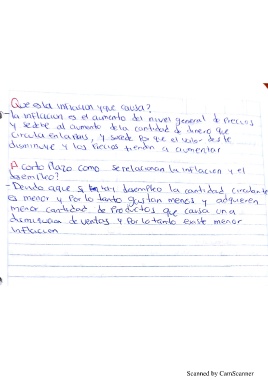 Que es la inflacion y que causa?
- la inflacion es el aumento del nivel general de Precios
y se debe al aumento de la cantidad de dinero que
circula en la Pais, y sucede es que el valor de este
disminuye y los Precios tienden a aumentar
A corto Plazo como se relacionan la inflacion y el
desempleo?
- Devido a que si hay desempleo la cantidad circulante
es menor y Por lo tanto gastan menos y adquieren
menor cantidad de Productos que causa una
disminucion de ventas y Por lo tanto existe menor
Inflacion
Scanned by CamScanner